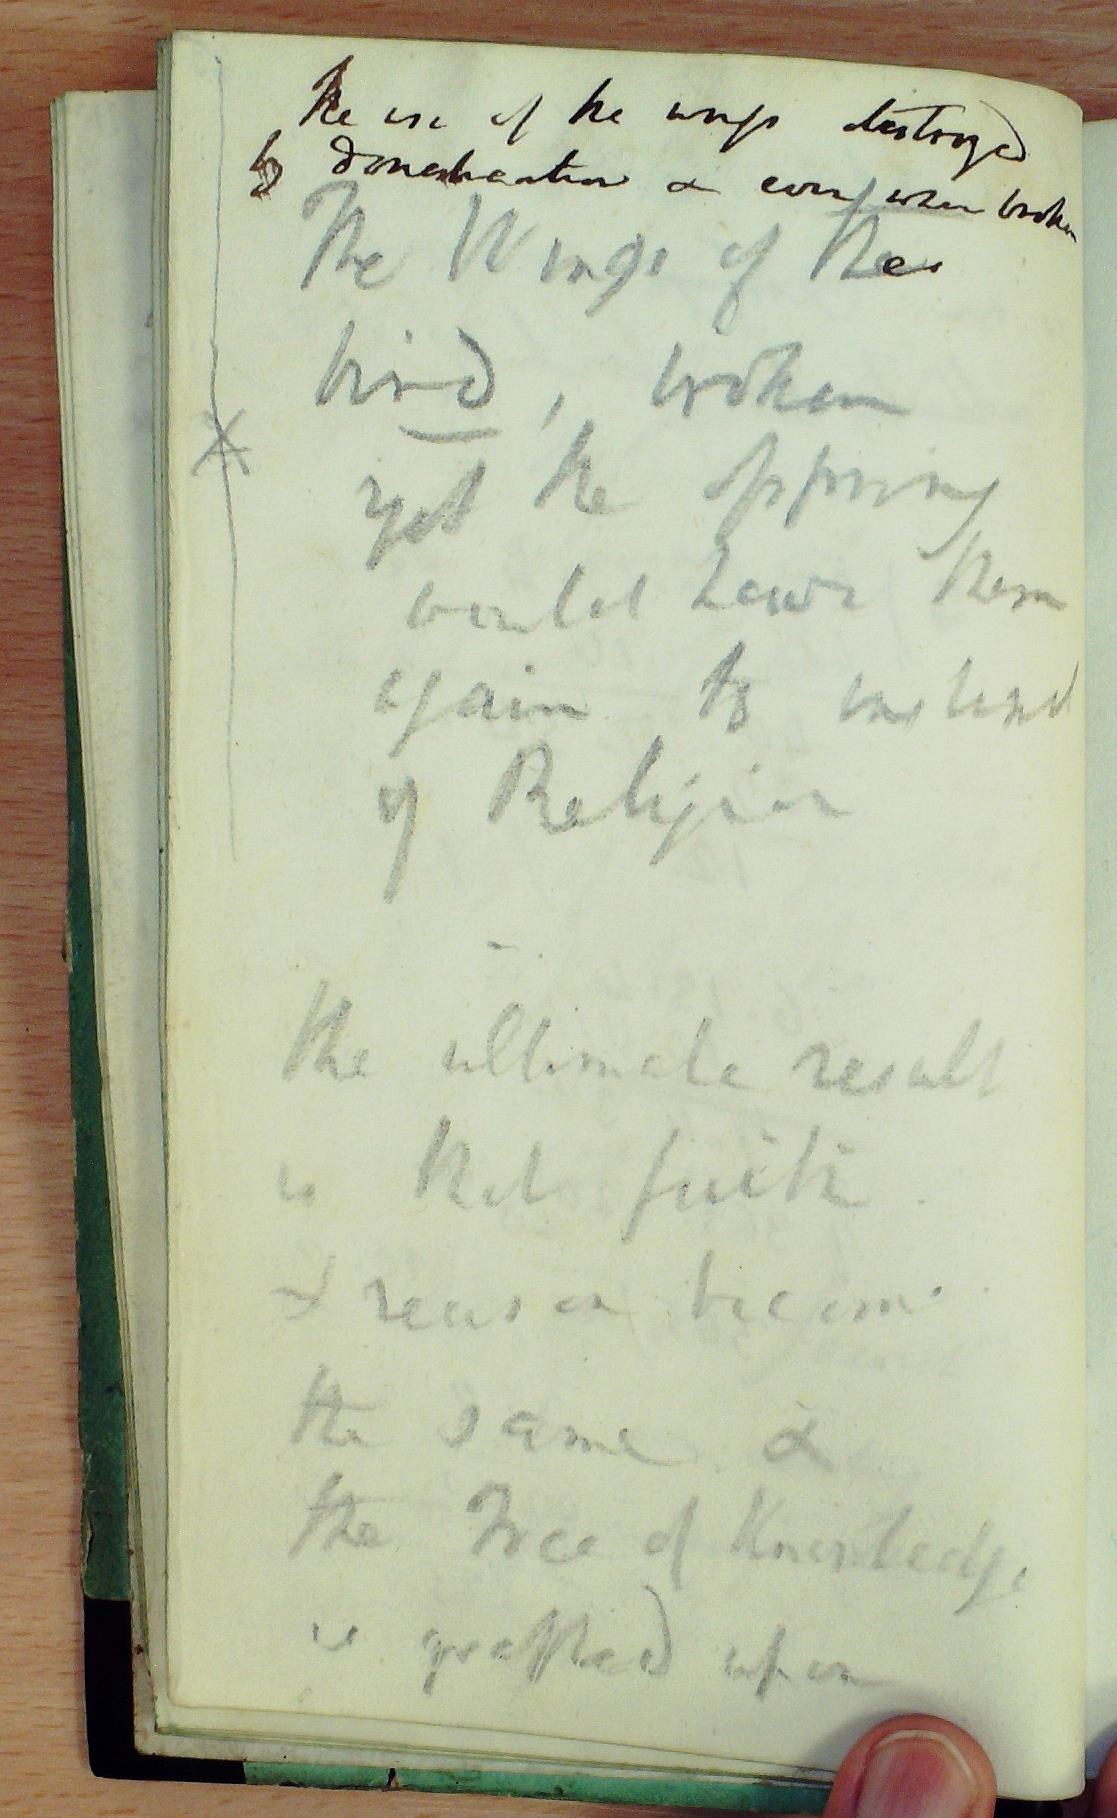 The use of the wings destroyed
by domestication & even when broken
The Wings of the
bird, broken
yet the offspring
would have them
again to instead
of Religion
the ultimate result
is that faith
& reason become
the same &
the Tree of Knowledge
is grafted upon